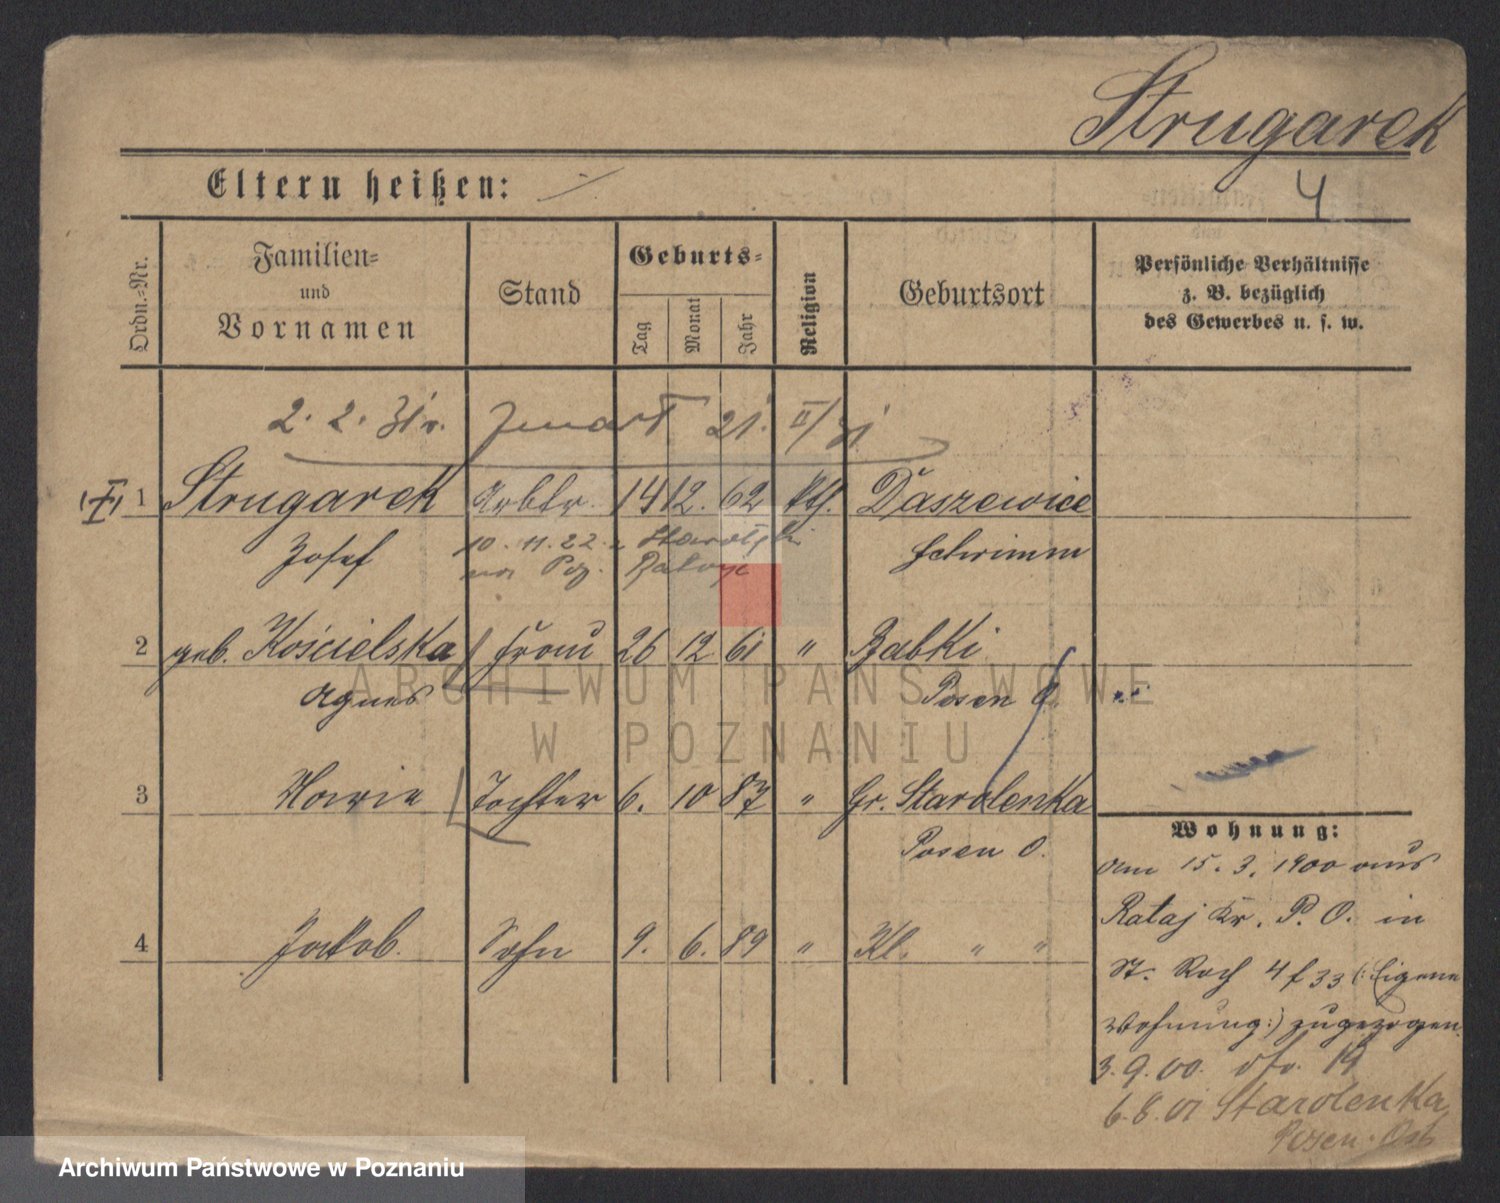 Strugarek
Eltern heißen: ./.
4
Ordn.-Nr.
Familien-
und
Vornamen
Stand
Geburts-
Tag
Monat
Jahr
Religion
Geburtsort
Persönliche Verhältnisse
z. B. bezüglich
des Gewerbes u. s. w.
2. 2. 31 21. II/31
1 Strugarek Arbtr. 14 12. 62 kth. Daszewice
Josef Schrimm
10. 11. 22
2 geb. Kościelska Frau 26 12 61 " Babki
Agnes Posen O.
3 Marie Tochter 6. 10 87 " Gr. Starolenka
Posen O.
4 Jakob. Sohn 9. 6. 89 " Kl. " "
Wohnung:
am 15. 3. 1900 aus
Rataj Kr. P. O. in
St. Roch 4 f 33 (: Eigene
Wohnung:) zugezogen.
3. 9. 00. 19
6. 8. 01 Starolenka
Posen. Ost
ARCHIWUM PAŃSTWOWE
W POZNANIU
Archiwum Państwowe w Poznaniu